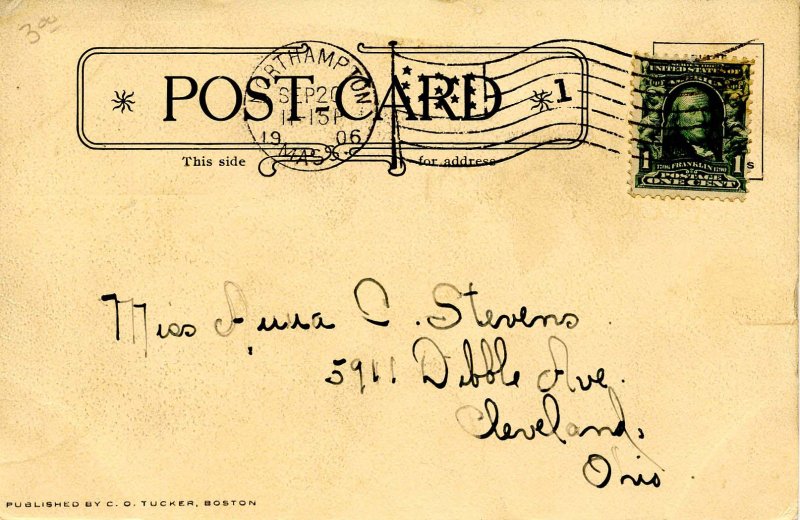 3.00
NORTHAMPTON
SEP 20
1906
MASS.
POST-CARD
1
This side
for address
UNITED STATES OF
1
1
FRANKLIN
POSTAGE
ONE CENT
Miss Anna C. Stevens
5911 Dibble Ave.
Cleveland,
Ohio
PUBLISHED BY C. O. TUCKER, BOSTON